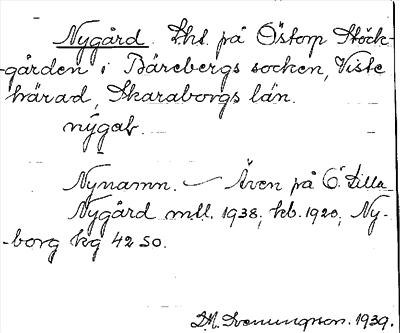 Nygård. Lht på Östorp Stock-
-gården i Bärebergs socken, Viste
härad, Skaraborgs län.
nýgaḷ.
Nynamn. — Även på Ö. Lilla
Nygård mtl. 1938, kb. 1920, Ny-
-borg kg 42 SO.
D.H. Svenungson. 1939.